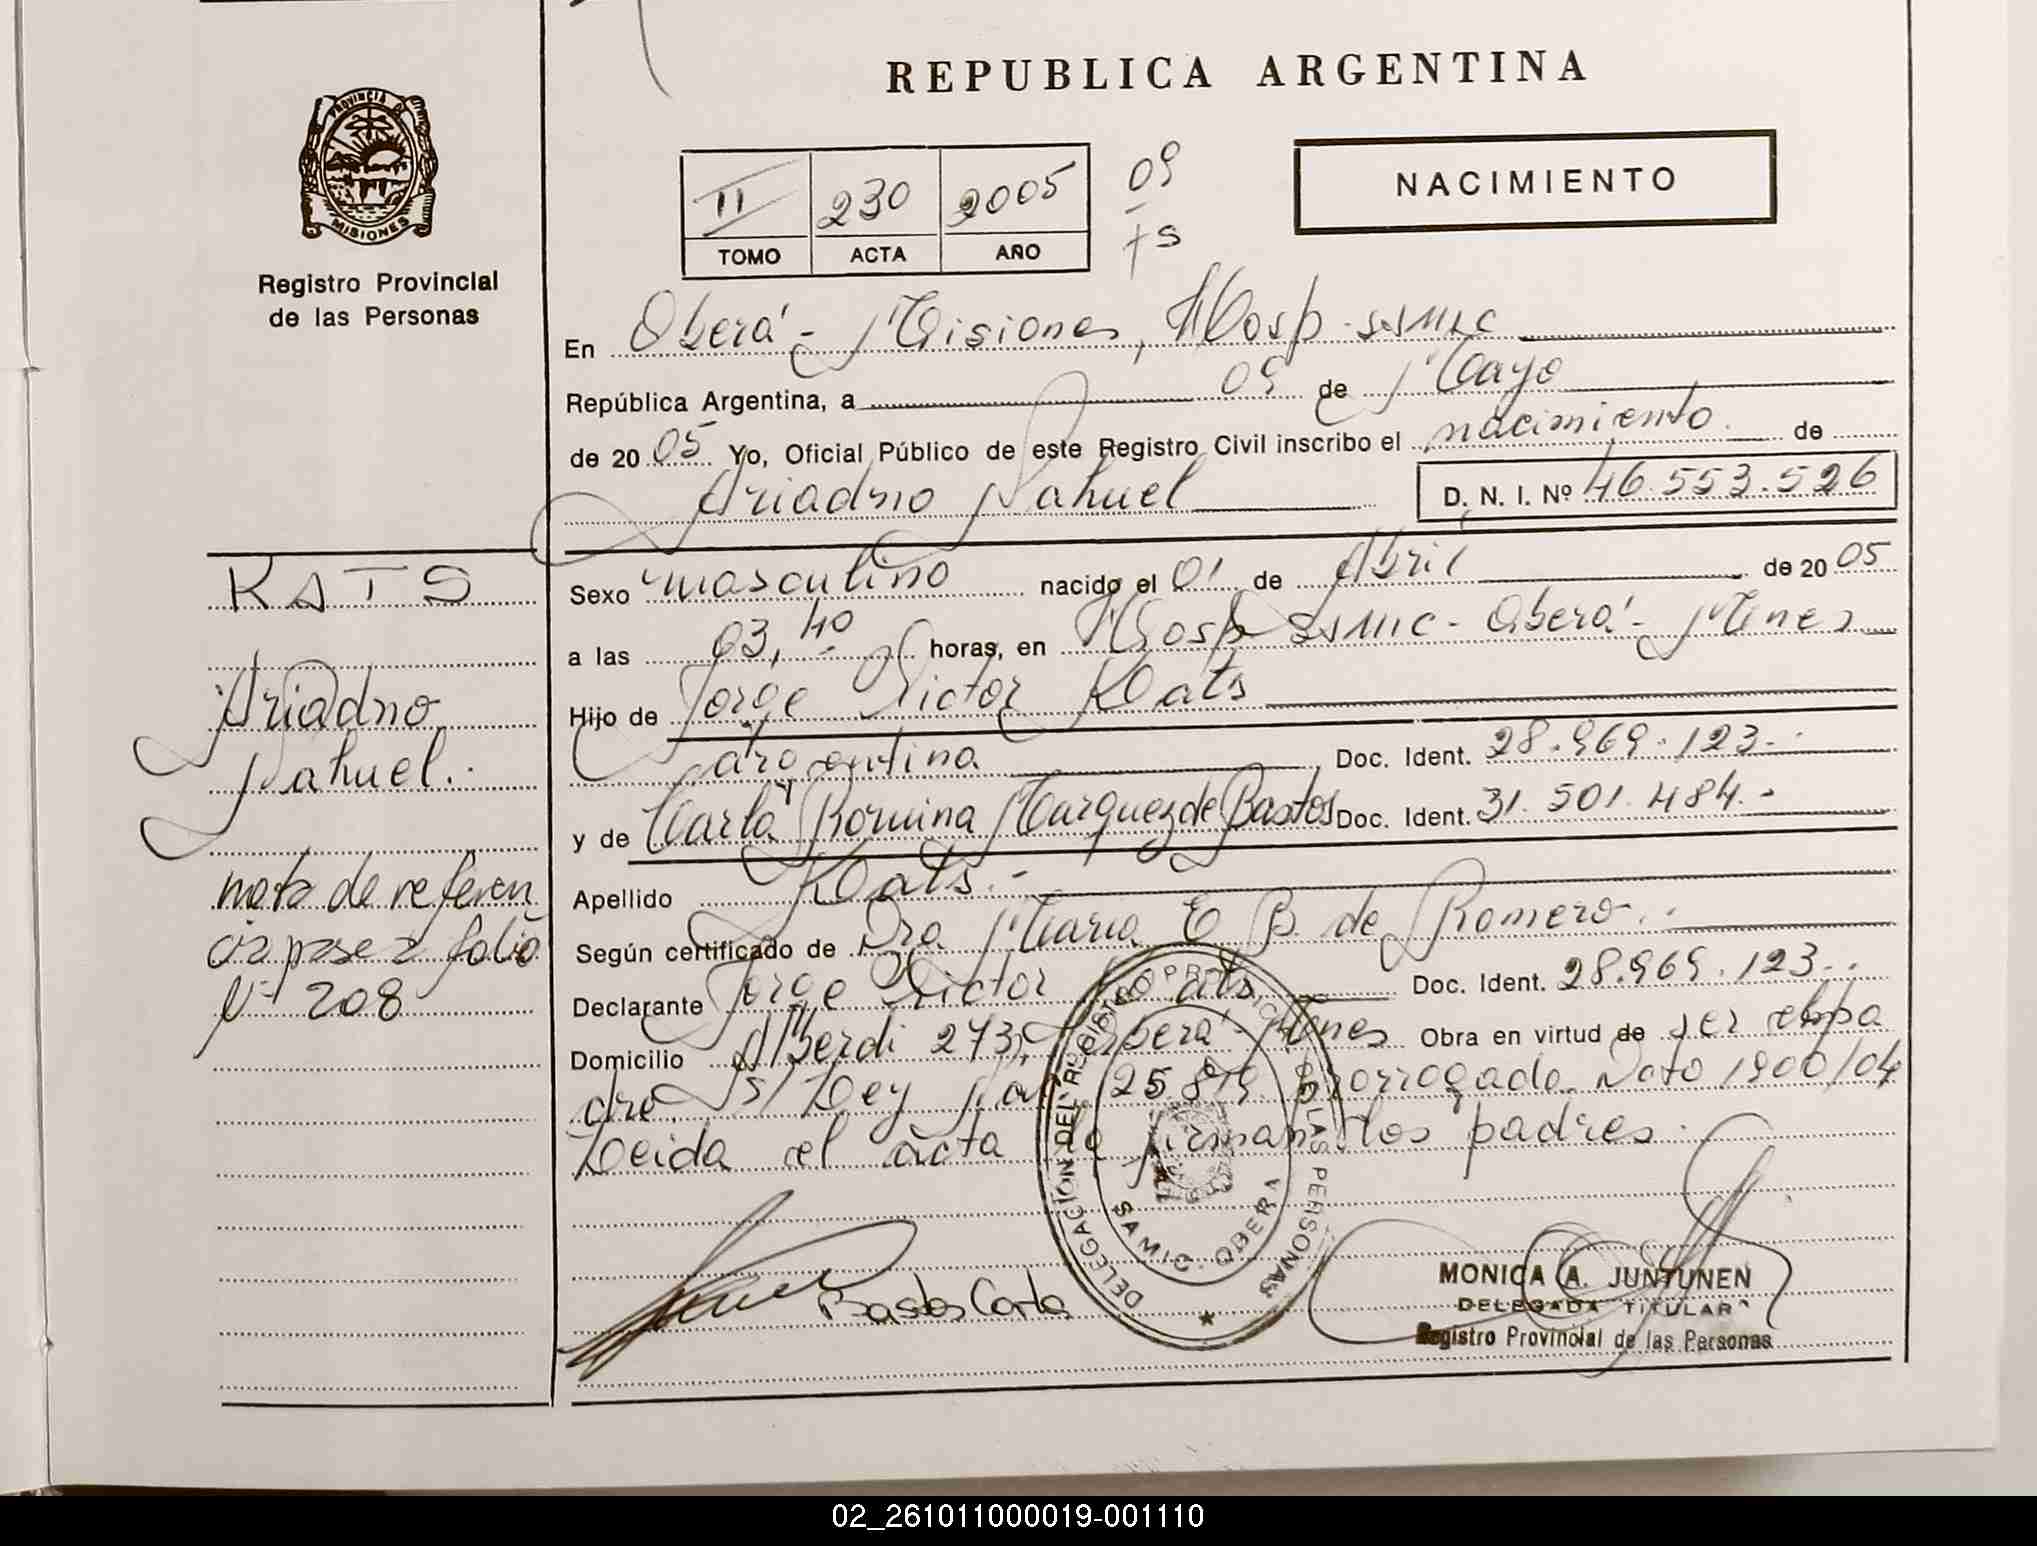 REPUBLICA ARGENTINA
PROVINCIA D MISIONES
Registro Provincial
de las Personas
II 230 2005
TOMO ACTA AÑO
09
NACIMIENTO
En Oberá - Misiones, Hosp. SSMIC
República Argentina, a 09 de Mayo
de 20 05 Yo, Oficial Público de este Registro Civil inscribo el nacimiento de
Ariadno Nahuel D. N. I. Nº 46.553.526
KATS
Ariadno
Nahuel.
nota de referen
cia pase a folio
Nº 208
Sexo masculino nacido el 01 de Abril de 20 05
a las 03,40 horas, en Hosp SSMIC - Oberá - Mnes
Hijo de Jorge Victor Kats
argentina Doc. Ident. 28.969.123.-
y de Karla Romina Marquez de Bastos Doc. Ident. 31.501.484.-
Apellido Kats.-
Según certificado de Dra Maria E B de Romero.-
Declarante Jorge Victor Kats Doc. Ident. 28.969.123.-
Domicilio Alberdi 273, Oberá - Mnes Obra en virtud de ser el pa
dre. S/ Ley Nac 25.819 prorrogado 1900/04
Leida el acta la firman los padres.
Bastos Carla
DELEGACIÓN DEL REGISTRO PROVINCIAL DE LAS PERSONAS
SAMIC · OBERA
MONICA A. JUNTUNEN
DELEGADA TITULAR
Registro Provincial de las Personas
02_261011000019-001110